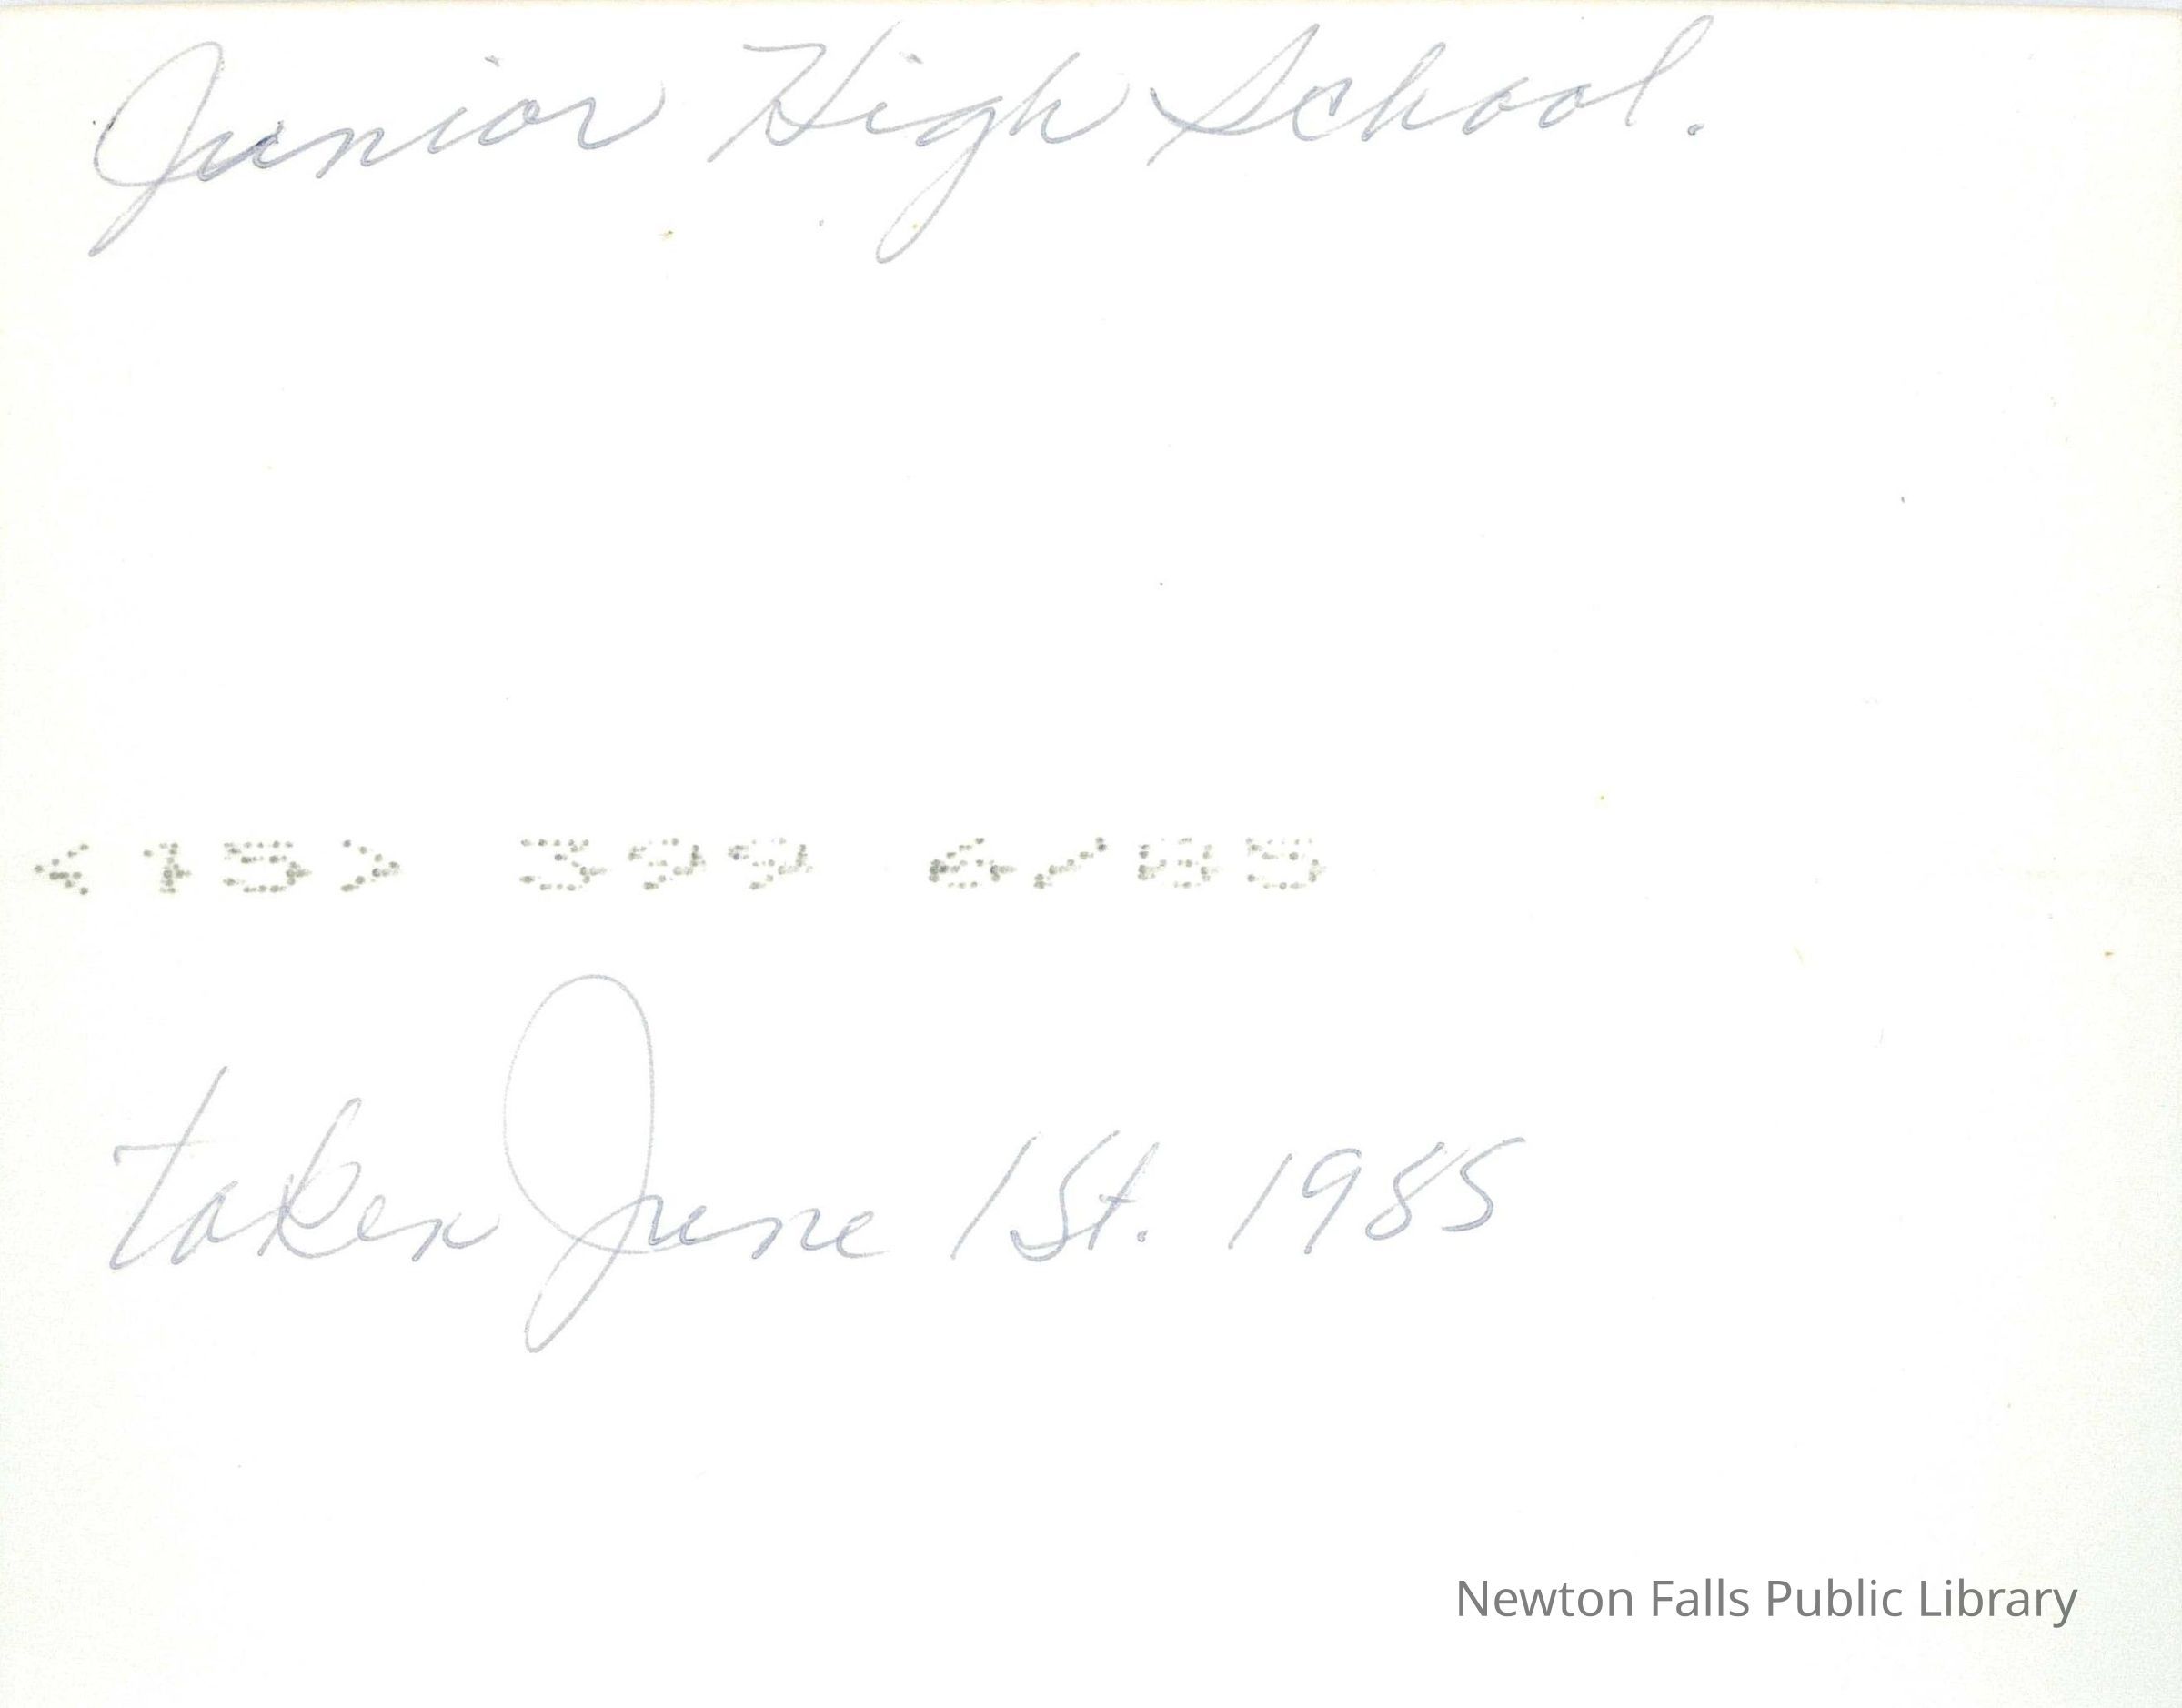 Junior High School.
<15> 399 6/85
taken June 1st. 1985
Newton Falls Public Library